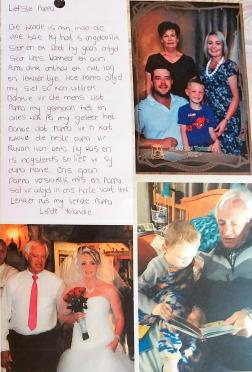 Liefste Pappa
Die Woorde is min maar die
vrae baie. My hart is
Seer en ek weet jy gaan altyd
Seer wees. Wanneer ek aan
Pappa dink onthou ek net
en lekker tye. Hoe Pappa altyd
my siel so kon
Dankie vir die mens wat
Pappa my gemaak het en
alles wat Pa my geleer het.
Dankie dat Pappa vir my kon
die beste oupa vir
Ruan kon wees. Hy was en
is nogsteeds so lief vir sy
oupa Manie. Ons gaan
Pappa verskriklik mis en Pappa
sal vir altyd in ons harte voort leef.
Lekker rus my liefste Pappa
Liefde Yolandie